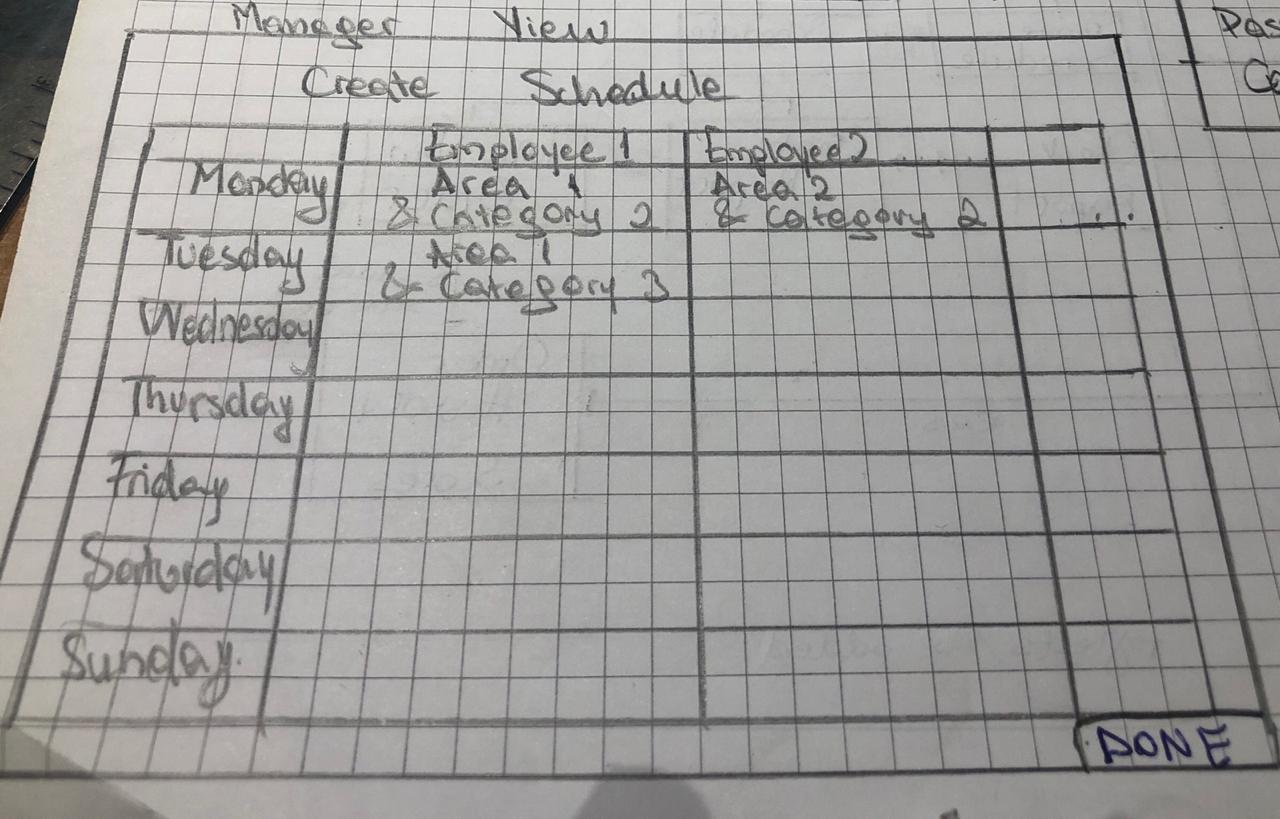 Manager View
Create Schedule
Employee 1 Employee 2
Monday Area 1 Area 2
& Category 2 & Category 2 ...
Tuesday Area 1
& Category 3
Wednesday
Thursday
Friday
Saturday
Sunday.
DONE